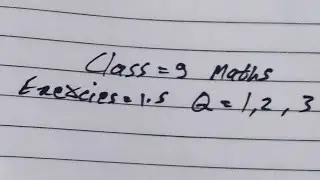 Class = 9 Maths
Exexcies = 1.5 Q = 1, 2, 3